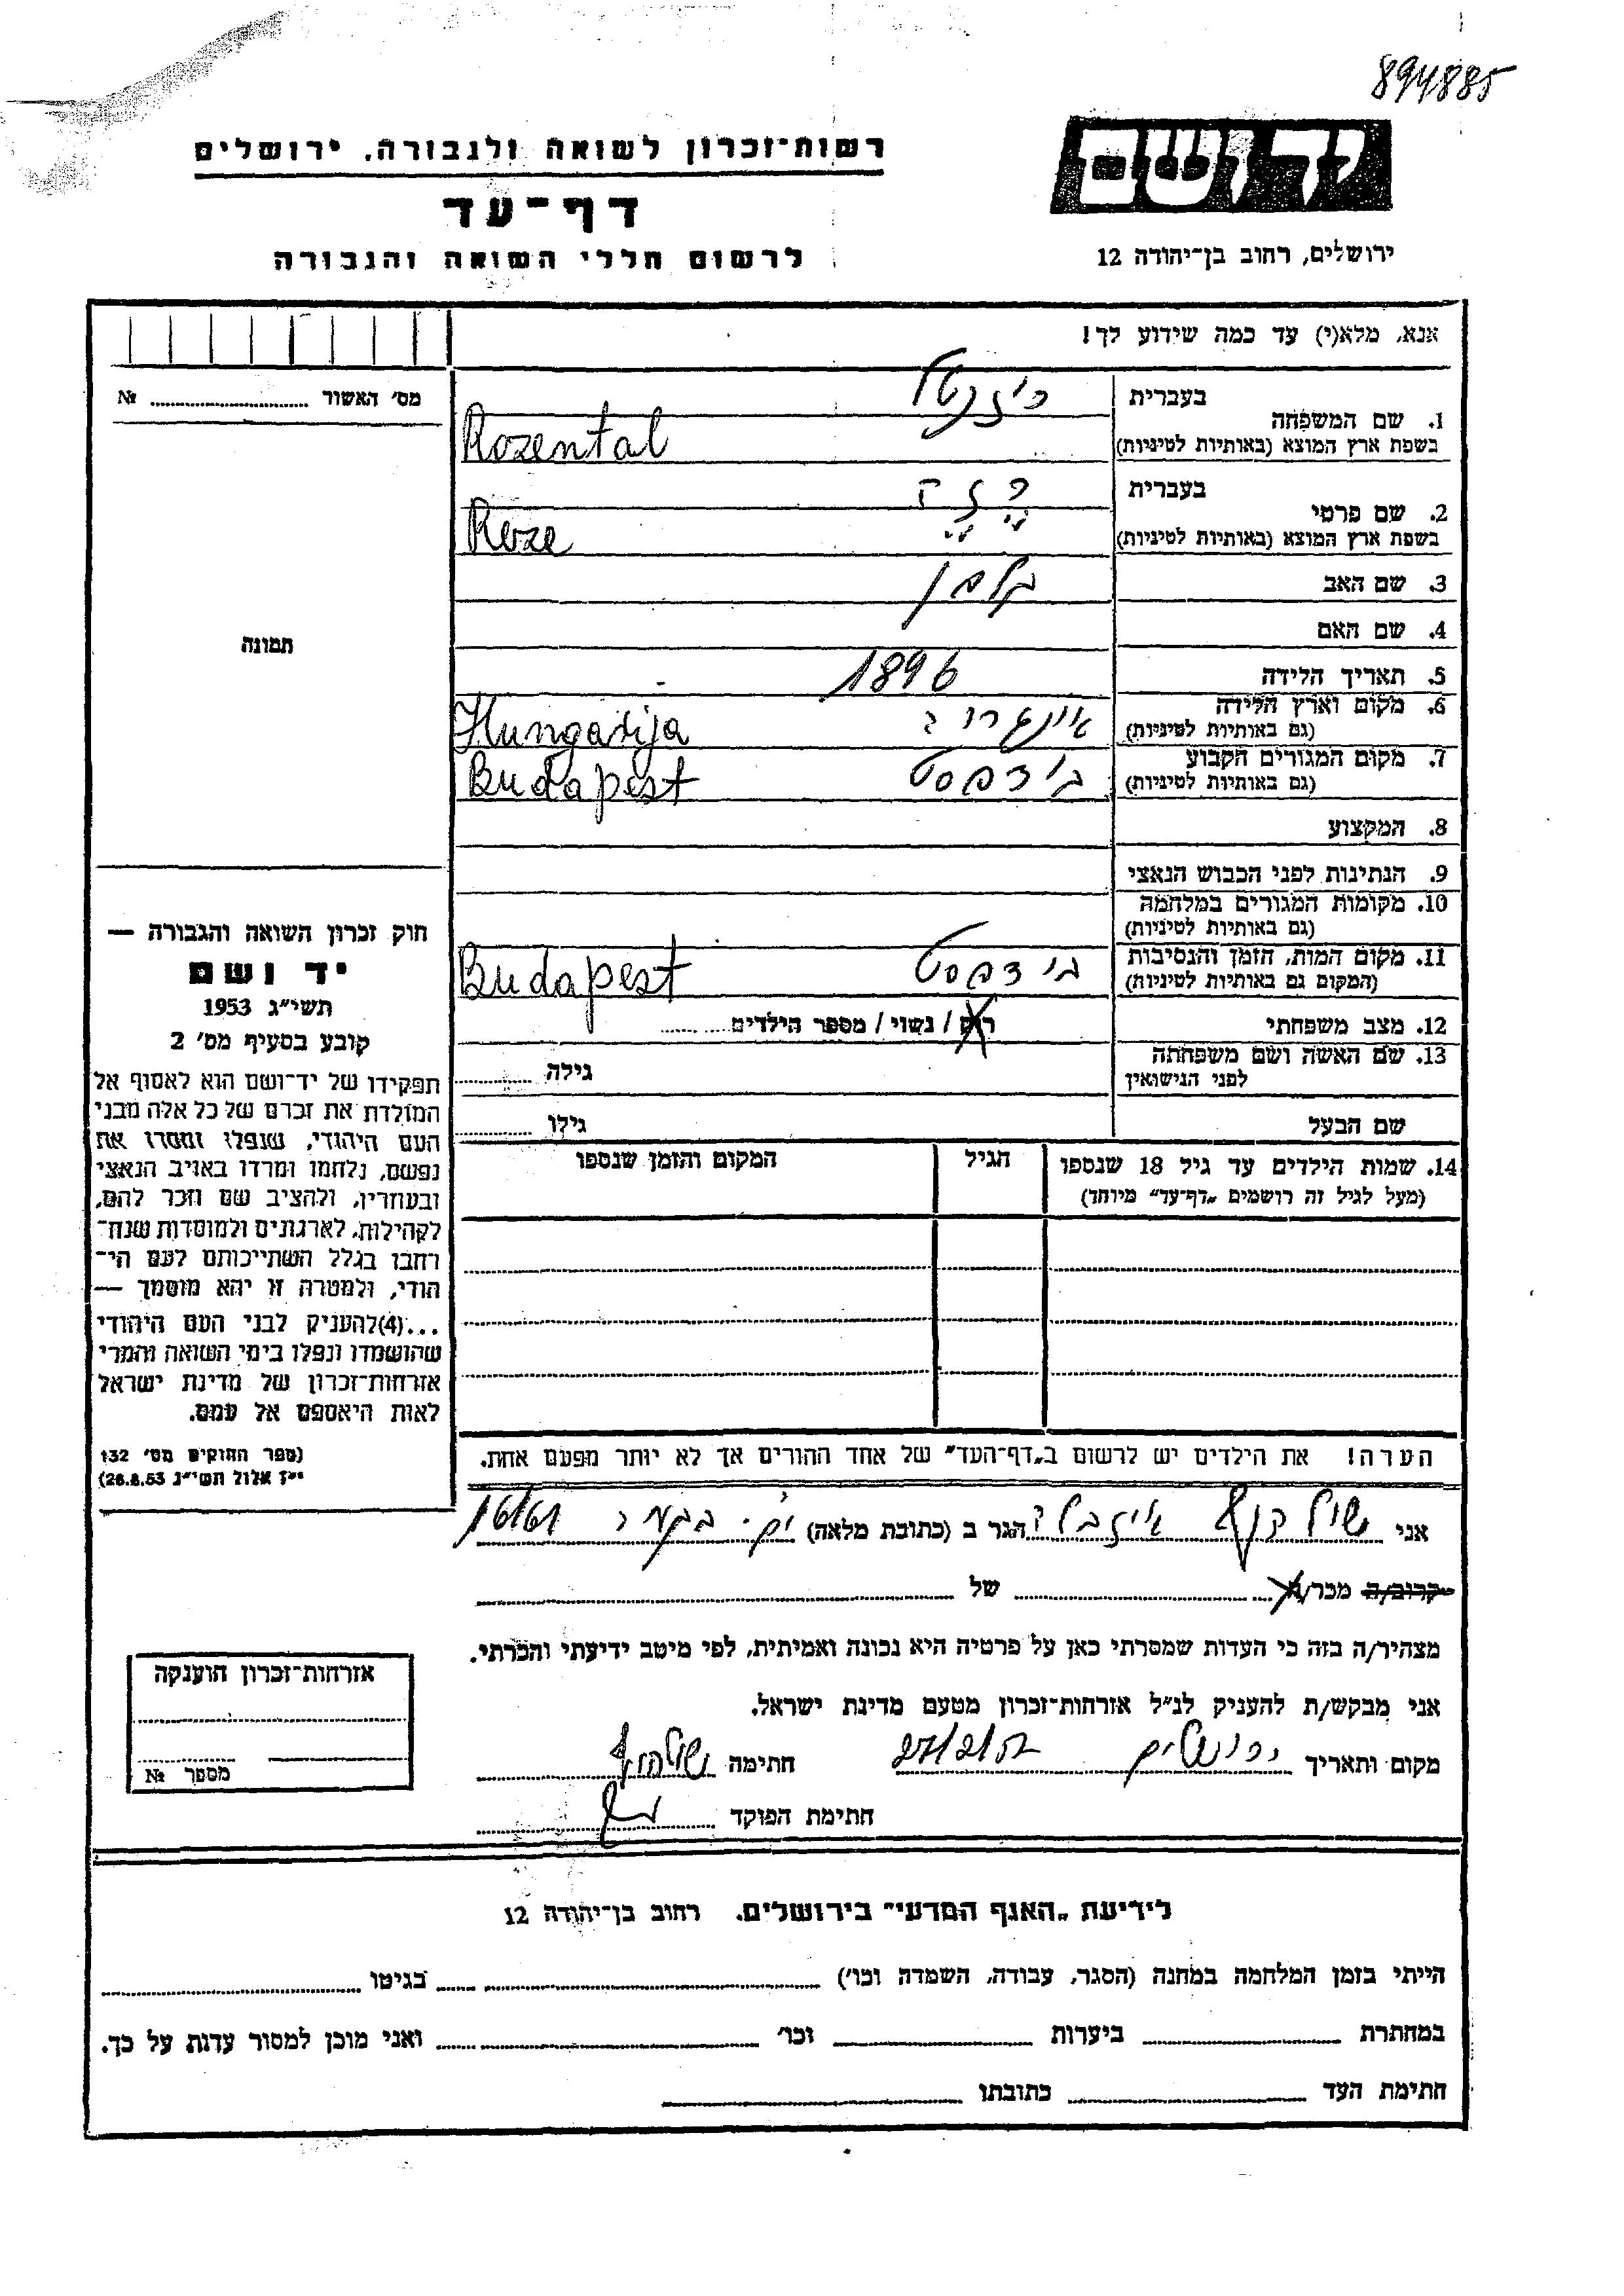 894885
יד ושם
ירושלים, רחוב בן־יהודה 12
רשות־זכרון לשואה ולגבורה, ירושלים
דף־עד
לרשום חללי השואה והגבורה
אנא, מלא(י) עד כמה שידוע לך!
מס׳ האשור № 
1. שם המשפחה
בעברית
בשפת ארץ המוצא (באותיות לטיניות) Rozental
2. שם פרטי
בעברית
בשפת ארץ המוצא (באותיות לטיניות) Roze
3. שם האב
4. שם האם
5. תאריך הלידה 1896
6. מקום וארץ הלידה
(גם באותיות לטיניות) Hungarija
7. מקום המגורים הקבוע בודפסט
(גם באותיות לטיניות) Budapest
8. המקצוע
9. הנתינות לפני הכבוש הנאצי
10. מקומות המגורים במלחמה
(גם באותיות לטיניות)
11. מקום המות, הזמן והנסיבות בודפסט
(המקום גם באותיות לטיניות) Budapest
12. מצב משפחתי רוק / נשוי / מספר הילדים
13. שם האשה ושם משפחתה
לפני הנישואין גילה
שם הבעל גילו
14. שמות הילדים עד גיל 18 שנספו הגיל המקום והזמן שנספו
(מעל לגיל זה רושמים „דף־עד״ מיוחד)
תמונה
חוק זכרון השואה והגבורה —
יד ושם
תשי״ג 1953
קובע בסעיף מס׳ 2
תפקידו של יד־ושם הוא לאסוף אל
המולדת את זכרם של כל אלה מבני
העם היהודי, שנפלו ומסרו את
נפשם, נלחמו ומרדו באויב הנאצי
ובעוזריו, ולהציב שם וזכר להם,
לקהילות, לארגונים ולמוסדות שנח־
רבו בגלל השתייכותם לעם הי־
הודי, ולמטרה זו יהא מוסמך —
...(4)להעניק לבני העם היהודי
שהושמדו ונפלו בימי השואה והמרי
אזרחות־זכרון של מדינת ישראל
לאות היאספם אל עמם.
(ספר החוקים מס׳ 132
י״ז אלול תשי״ג 26.8.53)
הערה! את הילדים יש לרשום ב„דף־העד״ של אחד ההורים אך לא יותר מפעם אחת.
אני הגר ב (כתובת מלאה)
קרוב/ה מכר/ה של
מצהיר/ה בזה כי העדות שמסרתי כאן על פרטיה היא נכונה ואמיתית, לפי מיטב ידיעתי והכרתי.
אני מבקש/ת להעניק לנ״ל אזרחות־זכרון מטעם מדינת ישראל.
מקום ותאריך ירושלים חתימה
חתימת הפוקד
אזרחות־זכרון הוענקה
מספר №
לידיעת „האגף המדעי״ בירושלים. רחוב בן־יהודה 12
הייתי בזמן המלחמה במחנה (הסגר, עבודה, השמדה וכו׳) בגיטו
במחתרת ביערות וכו׳ ואני מוכן למסור עדות על כך.
חתימת העד כתובתו